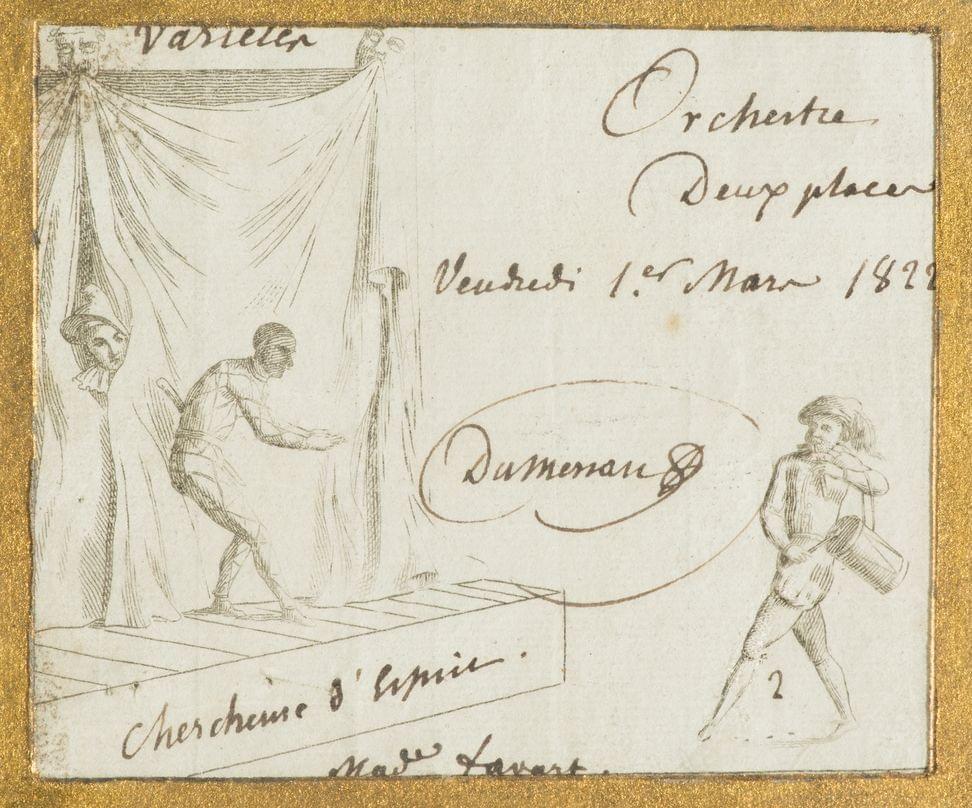 Varietés
Orchestre
Deux places
Vendredi 1.er Mars 1822
Dumersan
2
Chercheuse d'Esprit.
Made favart.